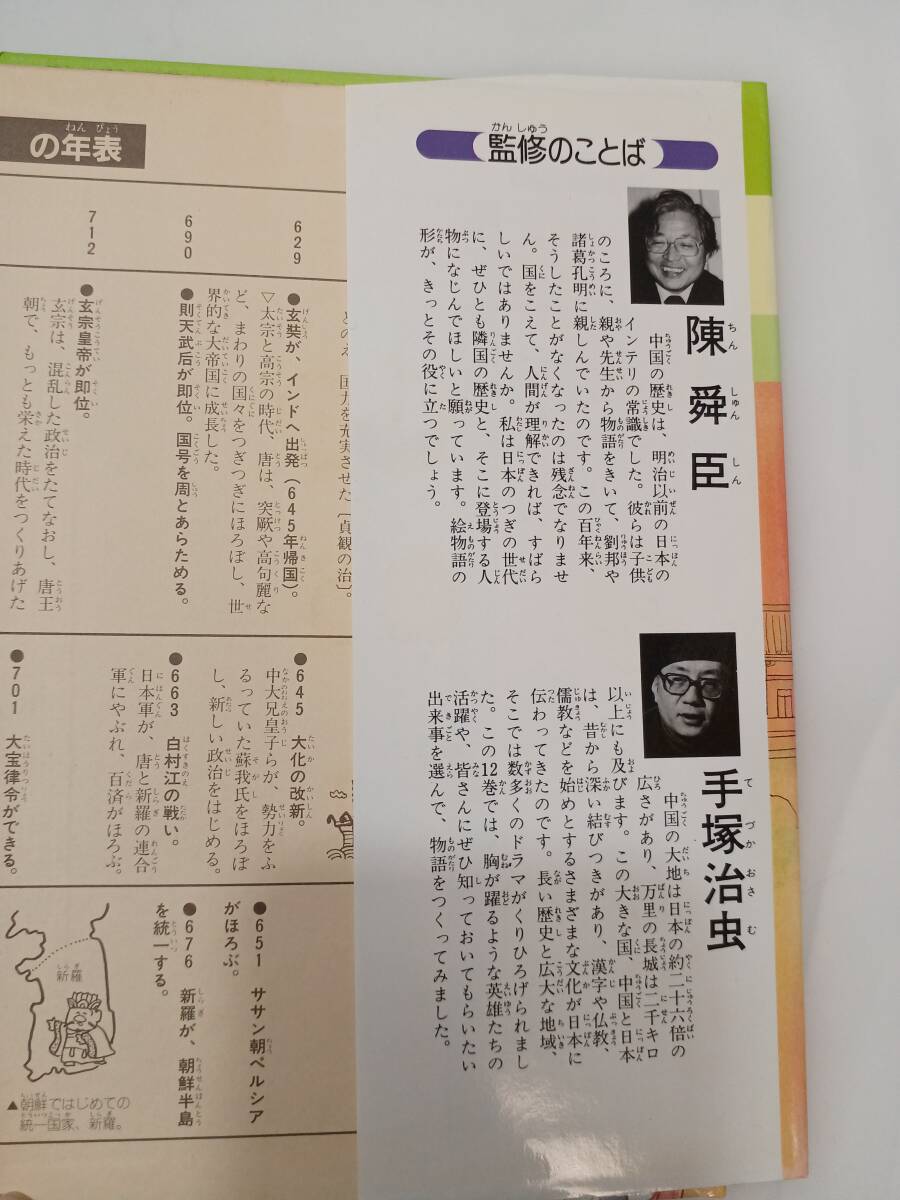 監修のことば
陳舜臣
中国の歴史は、明治以前の日本の
インテリの常識でした。彼らは子供
のころに、親や先生から物語をきいて、劉邦や
諸葛孔明に親しんでいたのです。この百年来、
そうしたことがなくなったのは残念でなりませ
ん。国をこえて、人間が理解できれば、すばら
しいではありませんか。私は日本のつぎの世代
に、ぜひとも隣国の歴史と、そこに登場する人
物になじんでほしいと願っています。絵物語の
形が、きっとその役に立つでしょう。
手塚治虫
中国の大地は日本の約二十六倍の
広さがあり、万里の長城は二千キロ
以上にも及びます。この大きな国、中国と日本
は、昔から深い結びつきがあり、漢字や仏教、
儒教などを始めとするさまざまな文化が日本に
伝わってきたのです。長い歴史と広大な地域、
そこでは数多くのドラマがくりひろげられまし
た。この12巻では、胸が躍るような英雄たちの
活躍や、皆さんにぜひ知っておいてもらいたい
出来事を選んで、物語をつくってみました。
の年表
629
690
712
国力を充実させた〔貞観の治〕。
●玄奘が、インドへ出発（645年帰国）。
▽太宗と高宗の時代、唐は、突厥や高句麗な
ど、まわりの国々をつぎつぎにほろぼし、世
界的な大帝国に成長した。
●則天武后が即位。国号を周とあらためる。
●玄宗皇帝が即位。
玄宗は、混乱した政治をたてなおし、唐王
朝で、もっとも栄えた時代をつくりあげた
●645 大化の改新。
中大兄皇子らが、勢力をふ
るっていた蘇我氏をほろぼ
し、新しい政治をはじめる。
●663 白村江の戦い。
日本軍が、唐と新羅の連合
軍にやぶれ、百済がほろぶ。
●701 大宝律令ができる。
●651 ササン朝ペルシア
がほろぶ。
●676 新羅が、朝鮮半島
を統一する。
新羅
▲朝鮮ではじめての
統一国家、新羅。